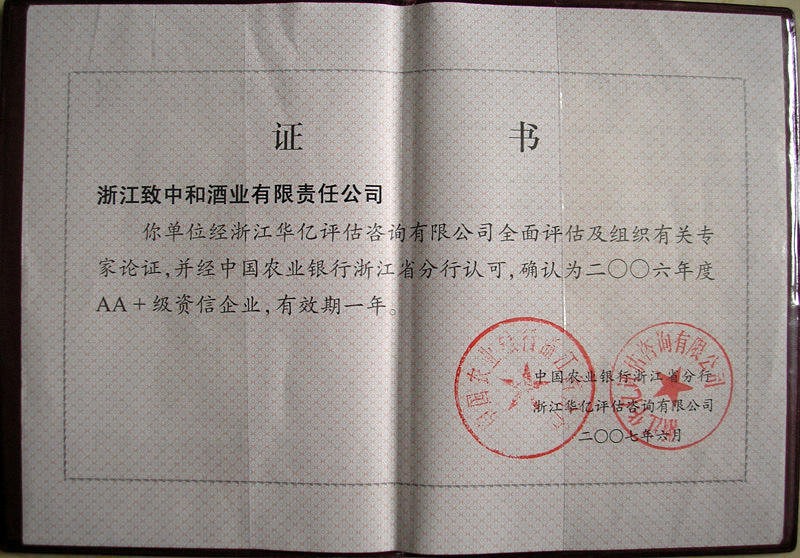 证 书
浙江致中和酒业有限责任公司
你单位经浙江华亿评估咨询有限公司全面评估及组织有关专
家论证,并经中国农业银行浙江省分行认可,确认为二〇〇六年度
AA+级资信企业,有效期一年。
中国农业银行浙江省分行
浙江华亿评估咨询有限公司
二〇〇七年六月
中国农业银行浙江省分行
浙江华亿评估咨询有限公司